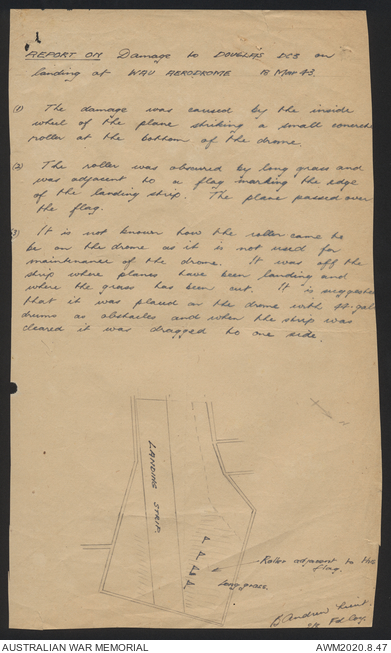 1
REPORT ON Damage to DOUGLAS DC3 on
landing at WAU AERODROME 12 Mar 43.
(1) The damage was caused by the inside
wheel of the plane striking a small concrete
roller at the bottom of the drome.
(2) The roller was obscured by long grass and
was adjacent to a flag marking the edge
of the landing strip. The plane passed over
the flag.
(3) It is not known how the roller came to
be on the drome as it is not used for
maintenance of the drome. It was off the
strip where planes have been landing and
where the grass has been cut. It is suggested
that it was placed on the drome with 44-gal
drums as obstacles and when the strip was
cleared it was dragged to one side.
LANDING STRIP.
Roller adjacent to the
flag.
Long grass.
Andrew Lieut.
Fd Coy.
AUSTRALIAN WAR MEMORIAL
AWM2020.8.47